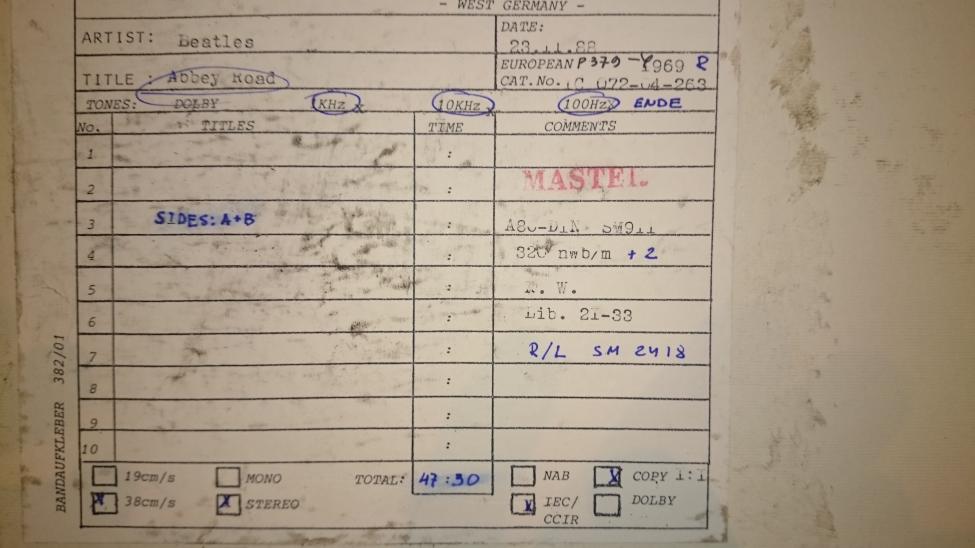 - WEST GERMANY -
ARTIST: Beatles
DATE:
23.11.88
TITLE : Abbey Road
EUROPEAN P 379 -Y 1969 R
CAT.No. 1C 072-04-263
TONES: DOLBY 1KHz x 10KHz x 100Hz x ENDE
No. TITLES TIME COMMENTS
1 :
2 : MASTER
3 SIDES: A+B : A80-DIN SM911
4 : 320 nwb/m + 2
5 : W.
6 : Lib. 21-33
7 : R/L SM 2418
8 :
9 :
10 :
19cm/s MONO TOTAL: 47:30 NAB X COPY 1:1
X 38cm/s X STEREO X IEC/ DOLBY
CCIR
BANDAUFKLEBER 382/01